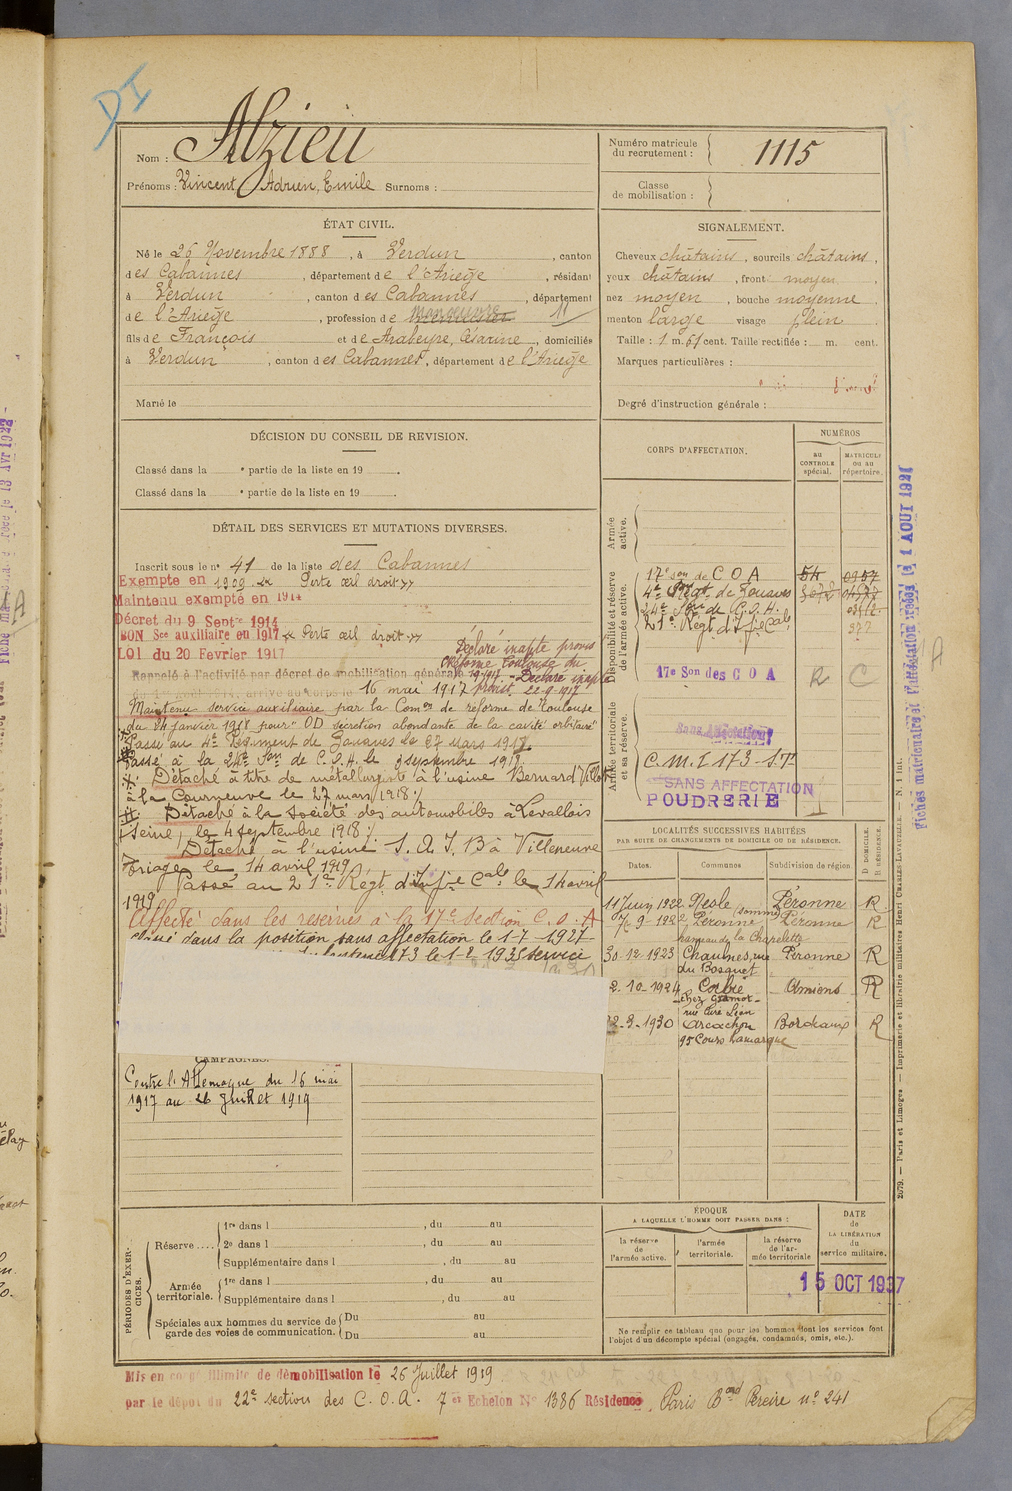 DI
Nom : Alzieu
Prénoms : Vincent, Adrien, Emile Surnoms :
Numéro matricule du recrutement : 1115
Classe de mobilisation :
ÉTAT CIVIL.
Né le 26 Novembre 1888, à Verdun, canton
des Cabannes, département de l'Ariège, résidant
à Verdun, canton des Cabannes, département
de l'Ariège, profession de manoeuvre 11
fils de François et de Arabeyre, Césarine, domiciliés
à Verdun, canton des Cabannes, département de l'Ariège
Marié le
SIGNALEMENT.
Cheveux châtains, sourcils châtains,
yeux châtains, front moyen,
nez moyen, bouche moyenne,
menton large visage plein
Taille : 1 m. 61 cent. Taille rectifiée : m. cent.
Marques particulières :
Degré d'instruction générale :
DÉCISION DU CONSEIL DE REVISION.
Classé dans la e partie de la liste en 19 .
Classé dans la e partie de la liste en 19 .
DÉTAIL DES SERVICES ET MUTATIONS DIVERSES.
Inscrit sous le n° 41 de la liste des Cabannes
Exempte en 1909. « Perte œil droit »
Maintenu exempté en 1914
Décret du 9 Septre 1914
BON Sce auxiliaire en 1917 « Perte œil droit »
LOI du 20 Fevrier 1917
Déclaré inapte provis
Réforme Toulouse du
Déclaré inapte
provist 22-9-1917
Rappelé à l'activité par décret de mobilisation générale
du 1er août 1914, arrivé au corps le 16 mai 1917
Maintenu service auxiliaire par la Comon de réforme de Toulouse
du 24 janvier 1918 pour "OD sécrétion abondante de la cavité orbitaire"
Passé au 4e Régiment de Zouaves le 27 Mars 1918
Passé à la 24e Son de C.O.A. le 9 septembre 1918
Détaché à titre de métallurgiste à l'usine Bernard
à la Courneuve le 27 mars 1918
Détaché à la Société des automobiles à Levallois
(Seine) le 4 septembre 1918
Détaché à l'usine S. A. I. B à Villeneuve
Triage le 14 avril 1919
Passé au 21e Régt d'Infie Cale le 14 avril
1919
Affecté dans les réserves à la 17e Section C.O.A
dans la position sans affectation le 1-7-1927
173 le 1-2 1935 service
CORPS D'AFFECTATION.
NUMÉROS
au CONTROLE spécial.
MATRICULE ou au répertoire.
Armée active.
Disponibilité et réserve de l'armée active.
17e son de C O A 54 0957
4e Régt de Zouaves
24e Son de C.O.A.
21e Régt d'Infie Cale 377
17e Son des C O A R C
Armée territoriale et sa réserve.
Sans Affectation
C.M.I 173-S.T
SANS AFFECTATION
POUDRERIE
LOCALITÉS SUCCESSIVES HABITÉES
PAR SUITE DE CHANGEMENTS DE DOMICILE OU DE RÉSIDENCE.
Dates. Communes Subdivision de région. D DOMICILE. R RÉSIDENCE.
11 Juin 1922 Nesle (Somme) Péronne R
7-9-1922 Péronne Péronne R
hameau de la Chapelette
30-12-1923 Chaulnes, rue du Bosquet Péronne R
2-10-1924 Corbie Amiens R
22-3-1930 Arcachon Bordeaux R
95 Cours Lamarque
CAMPAGNES.
Contre l'Allemagne du 16 mai
1917 au 26 Juillet 1919
PÉRIODES D'EXERCICES.
Réserve.... 1re dans l , du au
2e dans l , du au
Supplémentaire dans l , du au
Armée territoriale. 1re dans l , du au
Supplémentaire dans l , du au
Spéciales aux hommes du service de garde des voies de communication. Du au
Du au
ÉPOQUE
A LAQUELLE L'HOMME DOIT PASSER DANS :
la réserve de l'armée active.
l'armée territoriale.
la réserve de l'armée territoriale
DATE de LA LIBÉRATION du service militaire.
15 OCT 1937
Ne remplir ce tableau que pour les hommes dont les services font
l'objet d'un décompte spécial (engagés, condamnés, omis, etc.).
Mis en congé illimité de démobilisation le 26 Juillet 1919
par le dépôt du 22e section des C.O.A. 7es Echelon N° 1386 Résidence, Paris Bard Pereire n° 241
2679. — Paris et Limoges. — Imprimerie et librairie militaires Henri CHARLES-LAVAUZELLE. — N. 1 int.